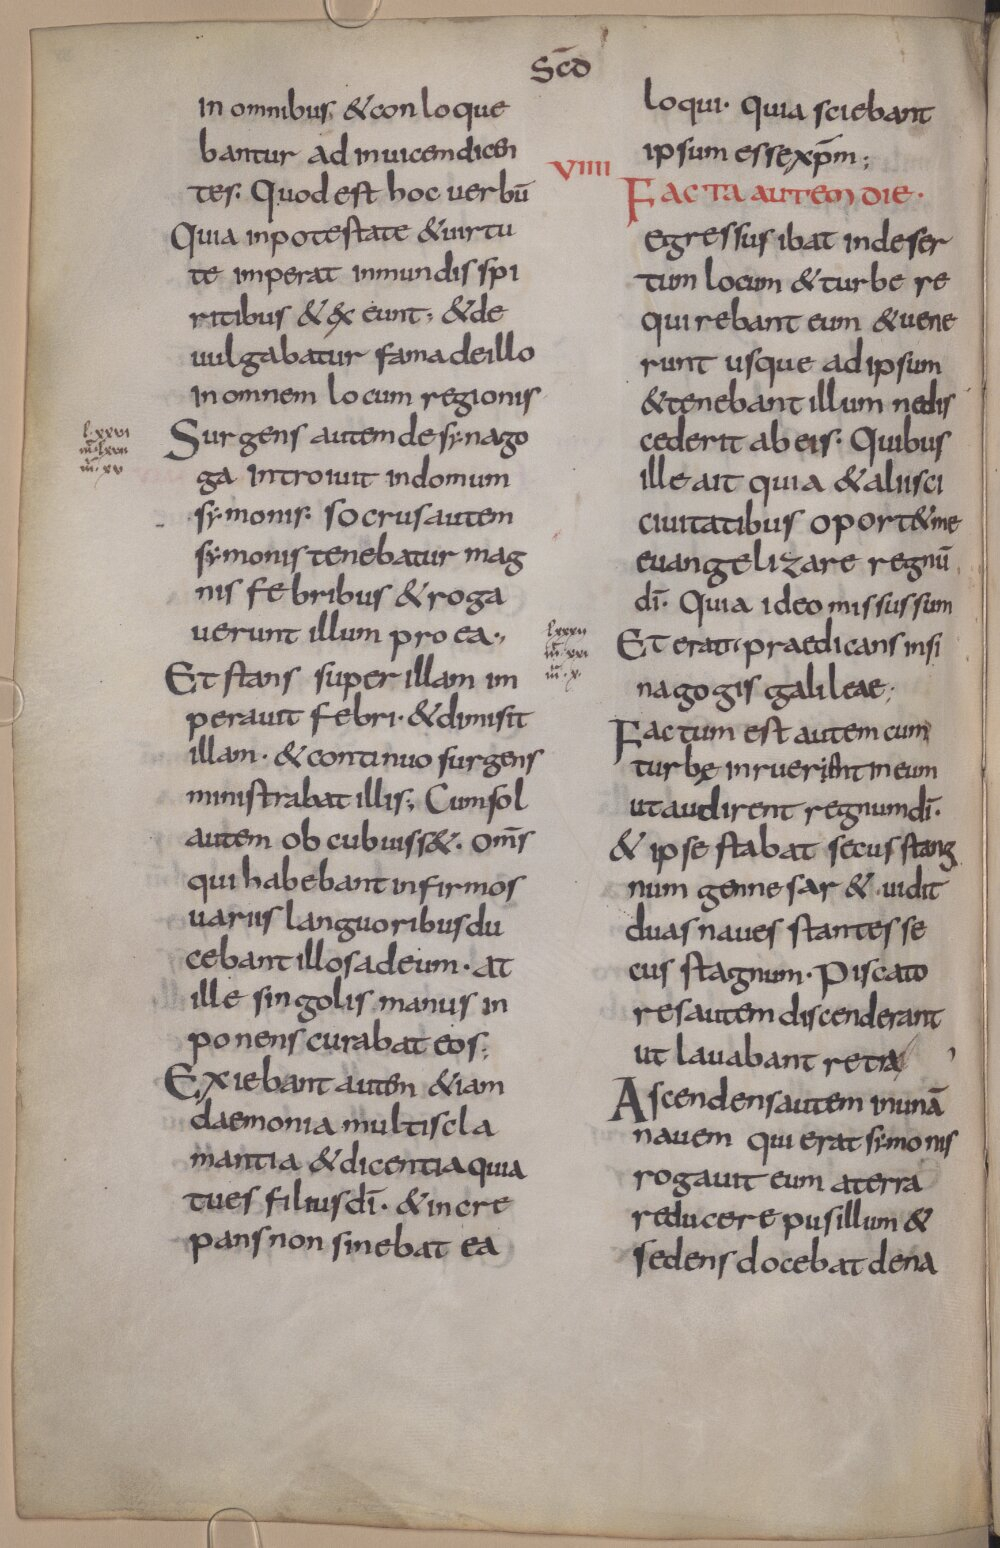 Sc̄d
in omnibus, & con loque
bantur ad inuicem dicen
tes· Quod est hoc uerbū
Quia in potestate & uirtu
te imperat inmundis spi
ritibus & ex eunt; & de
uulgabatur fama de illo
in omnem locum regionis
l·xxvi
Surgens autem de synago
ga introiuit in domum
symonis· socrus autem
symonis tenebatur mag
nis febribus & roga
uerunt illum pro ea·,
Et stans super illam im
perauit febri· & dimisit
illam· & continuo surgens
ministrabat illis; Cum sol
autem ob cubuiss&· om̄s
qui habebant infirmos
uariis languoribus du
cebant illos ad eum· at
ille singolis manus in
ponens curabat eos;
Exiebant autem & iam
daemonia multis cla
mantia & dicentia quia
tu es filius dī· & incre
pans non sinebat ea
loqui· quia sciebant
ipsum esse xp̄m;
VIIII
Facta autem die·
egressus ibat in deser
tum locum & turbe re
quirebant eum & uene
runt usque ad ipsum
& tenebant illum ne dis
cederit ab eis· Quibus
ille ait quia & aliis ci
ciuitatibus oport& me
euangelizare regnū
dī· Quia ideo missus sum
lxxxii
Et erat praedicans in si
nagogis galileae;
Factum est autem cum
turbę inruerint in eum
ut audirent regnum dī·
& ipse stabat secus stang
num gennesar & uidit
duas naues stantes se
cus stagnum· Piscato
res autem discenderant
ut lauabant retia
Ascendens autem in unā
nauem qui erat symonis
rogauit eum a terra
reducere pusillum &
sedens docebat de na